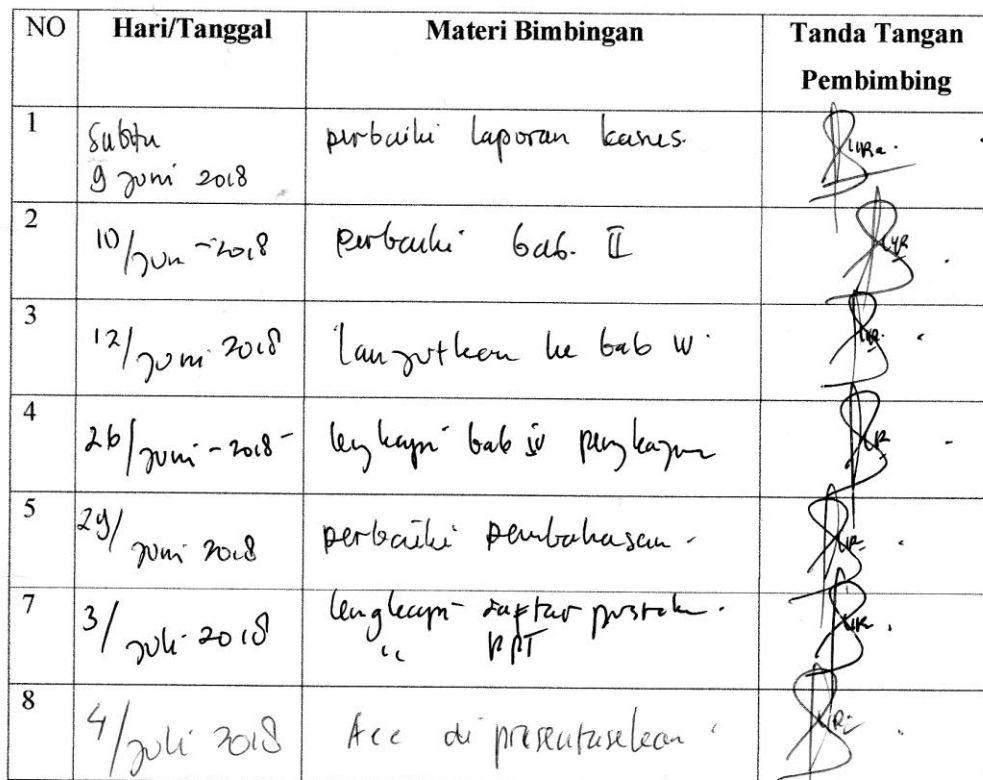 NO Hari/Tanggal Materi Bimbingan Tanda Tangan
Pembimbing
1 Sabtu perbaiki laporan kasus.
9 Juni 2018
2 10/Jun - 2018 perbaiki bab. II
3 12/Juni 2018 lanjutkan ke bab IV.
4 26/Juni - 2018 - lengkapi bab IV pengkajian
5 29/Juni 2018 perbaiki pembahasan -
7 3/Juli 2018 lengkapi - daftar pustaka.
" PPT
8 4/Juli 2018 Acc di presentasikan